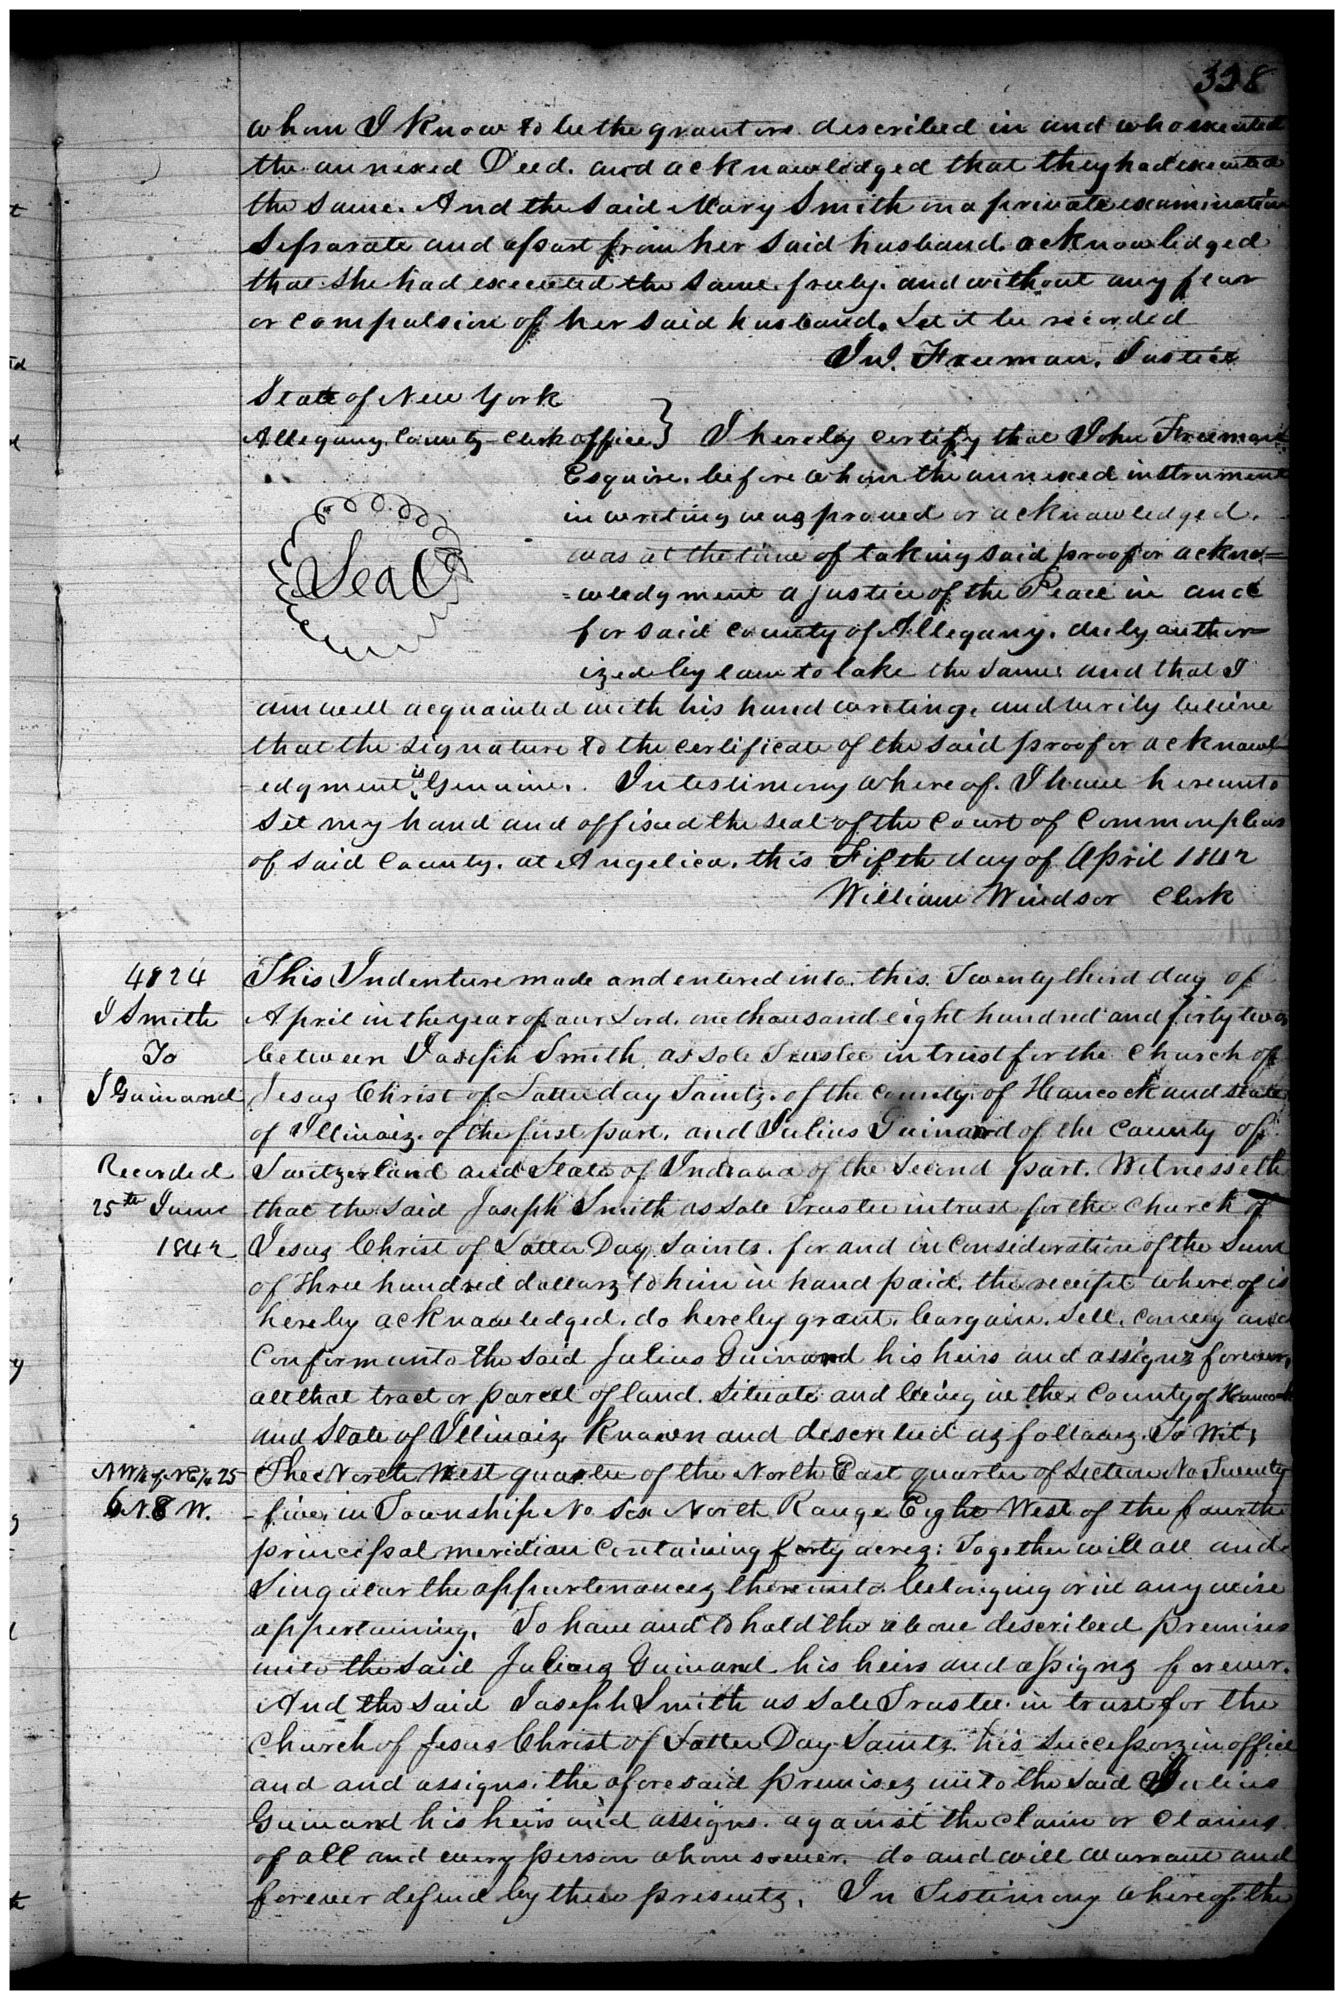 328
whom I know to be the grantors described in and who executed
the annexed Deed. and acknowledged that they had executed
the same. And the said Mary Smith on a private examination
separate and apart from her said husband. acknowledged
that she had executed the same. freely. and without any fear
or compulsion of her said husband. Let it be recorded
Jno. Freeman. Justice
State of New York
Allegany County Clerk office } I hereby certify that John Freeman
Esquire. before whom the annexed instrument
in writing was proved or acknowledged.
Seal
was at the time of taking said proof or ackno=
=wledgment a justice of the Peace in and
for said county of Allegany. duly author=
ized by law to take the same: and that I
am well acquainted with his hand writing. and verily believe
that the signature to the certificate of the said proof or acknowl-
-edgment is Genuine. In testimony whereof. I have hereunto
set my hand and affixed the seal of the Court of Common pleas
of said County. at Angelica. this Fifth day of April 1842
William Windsor Clerk
4824
J Smith
To
J Guinand
Recorded
25th June
1842
This Indenture made and entered into. this. Twenty third day of
April in the year of our Lord. one thousand eight hundred and forty two
between Joseph Smith as sole Trustee in trust for the Church of
Jesus Christ of Latter day Saints. of the county of Hancock and state
of Illinois. of the first part. and Julius Guinand of the County of
Switzerland and State of Indiana of the second part. Witnesseth
that the said Joseph Smith as sole Trustee in trust for the Church of
Jesus Christ of Latter Day Saints. for and in consideration of the sum
of three hundred dollars to him in hand paid. the receipt where of is
hereby acknowledged. do hereby grant. bargain. sell. convey and
Conform unto the said Julius Guinand his heirs and assigns forever,
all that tract or parcel of land. situate and being in the County of Hancock
and State of Illinois. known and described as follows. To Wit;
NW¼ of NE¼ 25
6 N. 8 W.
The North West quarter of the North East quarter of Section No Twenty
-five. in Township No six North Range Eight West of the fourth
principal meridian Containing forty acres: Together with all and
singular the appurtenances thereunto belonging or in any wise
appertaining. To have and to hold the above described premises
unto the said Julius Guinand his heirs and assigns forever.
And the said Joseph Smith as sole Trustee in trust for the
Church of Jesus Christ of Latter Day Saints his successors in office
and and assigns. the aforesaid premises unto the said Julius
Guinand his heirs and assigns. against the claim or claims
of all and every person whom soever. do and will warrant and
forever defend by these presents. In Testimony whereof. the